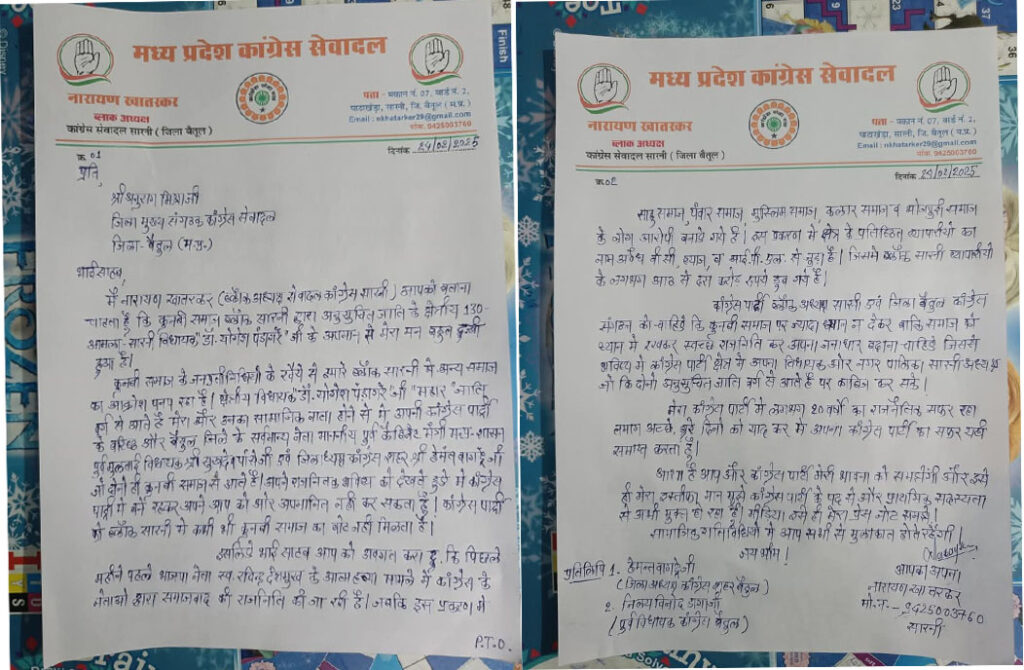 मध्य प्रदेश कांग्रेस सेवादल
नारायण खातरकर
ब्लाक अध्यक्ष
कांग्रेस सेवादल सारनी ( जिला बैतूल )
पता - मकान नं. 07, वार्ड नं. 2,
पाथाखेड़ा, सारनी, जि. बैतूल ( म.प्र. )
Email : nkhatarker29@gmail.com
मोबा. 9425003760
क्र. 01
दिनांक 24/02/2025
प्रति,
श्री अनुराग मिश्रा जी
जिला मुख्य संगठक कांग्रेस सेवादल
जिला - बैतूल (म.प्र.)
भाईसाहब,
मैं नारायण खातरकर (ब्लॉक अध्यक्ष सेवादल कांग्रेस सारनी) आपको बताना
चाहता हूँ कि कुनबी समाज ब्लॉक सारनी द्वारा अनुसुचित जाति के क्षेत्रीय 130-
आमला-सारनी विधायक डॉ. योगेश पंडाग्रे जी के अपमान से मेरा मन बहुत दुखी
हुआ है।
कुनबी समाज के जनप्रतिनिधियों के रवैये से हमारे ब्लॉक सारनी में अन्य समाज
का आक्रोश पनप रहा है। क्षेत्रीय विधायक डॉ. योगेश पंडाग्रे जी महार जाति
वर्ग से आते है मेरा और उनका सामाजिक नाता होने से मैं अपनी कांग्रेस पार्टी
के वरिष्ठ और बैतूल जिले के सर्वमान्य नेता माननीय पूर्व कैबिनेट मंत्री मध्य-शासन
पूर्व मुलताई विधायक श्री सुखदेव पांसे जी एवं जिलाध्यक्ष कांग्रेस शहर श्री हेमंत वागद्रे जी
जो दोनो ही कुनबी समाज से आते है। अपने राजनितिक भविष्य को देखते हुऐ मैं कांग्रेस
पार्टी में बने रहकर अपने आप को और अपमानित नहीं कर सकता हूँ। कांग्रेस पार्टी
को ब्लॉक सारनी में कभी भी कुनबी समाज का वोट नहीं मिलता है।
इसलिऐ भाई साहब आप को अवगत करा दु कि पिछले
महीने पहले भाजपा नेता स्व. रविन्द्र देशमुख के आत्महत्या मामले में कांग्रेस के
नेताओ द्वारा समाजवाद की राजनिति की जा रही है। जबकि इस प्रकरण में
P.T.O.
मध्य प्रदेश कांग्रेस सेवादल
नारायण खातरकर
ब्लाक अध्यक्ष
कांग्रेस सेवादल सारनी ( जिला बैतूल )
पता - मकान नं. 07, वार्ड नं. 2,
पाथाखेड़ा, सारनी, जि. बैतूल ( म.प्र. )
Email : nkhatarker29@gmail.com
मोबा. 9425003760
क्र. 02
दिनांक 24/02/2025
साहु समाज, पंवार समाज, मुस्लिम समाज, कलार समाज व भोजपुरी समाज
के लोग आरोपी बनाये गये है। इस प्रकरण में क्षेत्र के प्रतिष्ठित व्यापारीयों का
नाम अवैध बी.सी, ब्याज, व आई.पी.एल. से जुड़ा है। जिसमे ब्लॉक सारनी व्यापारीयो
के लगभग आठ से दस करोड़ रुपये डूब गये है।
कांग्रेस पार्टी ब्लॉक अध्यक्ष सारनी एवं जिला बैतूल कांग्रेस
संगठन को चाहिऐ कि कुनबी समाज पर ज्यादा ध्यान ना देकर बाकि समाज को
ध्यान में रखकर स्वच्छ राजनिति कर अपना जनाधार बढ़ाना चाहिऐ जिससे
भविष्य में कांग्रेस पार्टी क्षेत्र में अपना विधायक और नगर पालिका सारनी अध्यक्ष
जो कि दोनो अनुसुचित जाति वर्ग से आते है पर काबिज कर सके।
मेरा कांग्रेस पार्टी में लगभग 20 वर्षो का राजनैतिक सफर रहा
तमाम अच्छे, बुरे दिनो को याद कर मैं अपना कांग्रेस पार्टी का सफर यही
समाप्त करता हूँ।
आशा है आप और कांग्रेस पार्टी मेरी भावना को समझेगी और इसे
ही मेरा इस्तीफा मान मुझे कांग्रेस पार्टी के पद से और प्राथमिक सदस्यता
से अभी मुक्त हो रहा हूँ। मीडिया इसे ही मेरा प्रेस नोट समझे।
सामाजिक गतिविधियों में आप सभी से मुलाकात होते रहेंगी
जय भीम।
आपका अपना
नारायण खातरकर
मो.न. - 9425003760
सारनी
प्रतिलिपि 1. हेमन्त वागद्रे जी
(जिला अध्यक्ष कांग्रेस शहर बैतूल)
2. निलय विनोद डागा जी
(पूर्व विधायक कांग्रेस बैतूल)
Finish